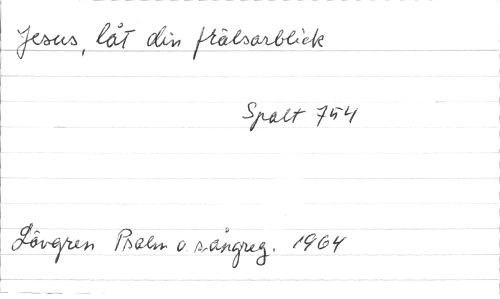 Jesus, låt din frälsarblick
Spalt 754
Lövgren Psalm o sångreg. 1964